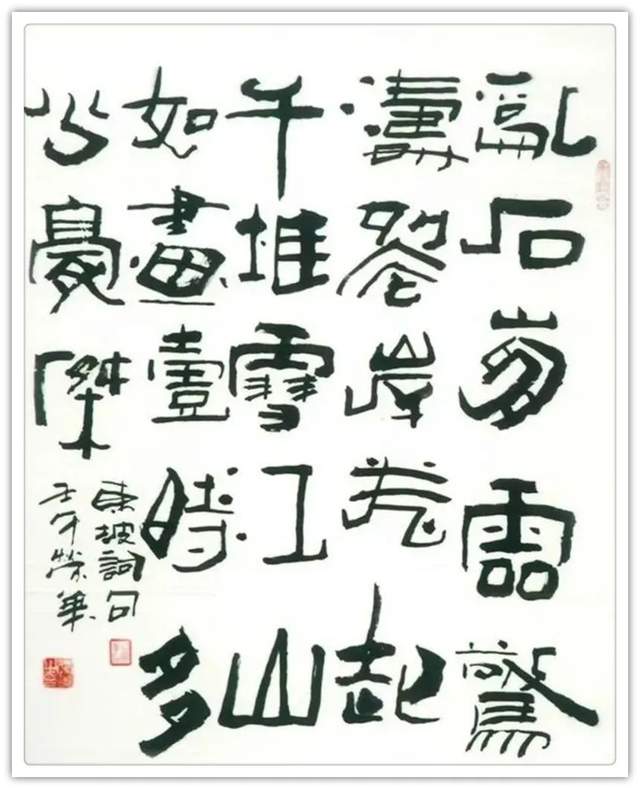 亂石崩雲驚
濤裂岸卷起
千堆雪江山
如畫壹時多
少豪傑
東坡詞句
壬午榮華